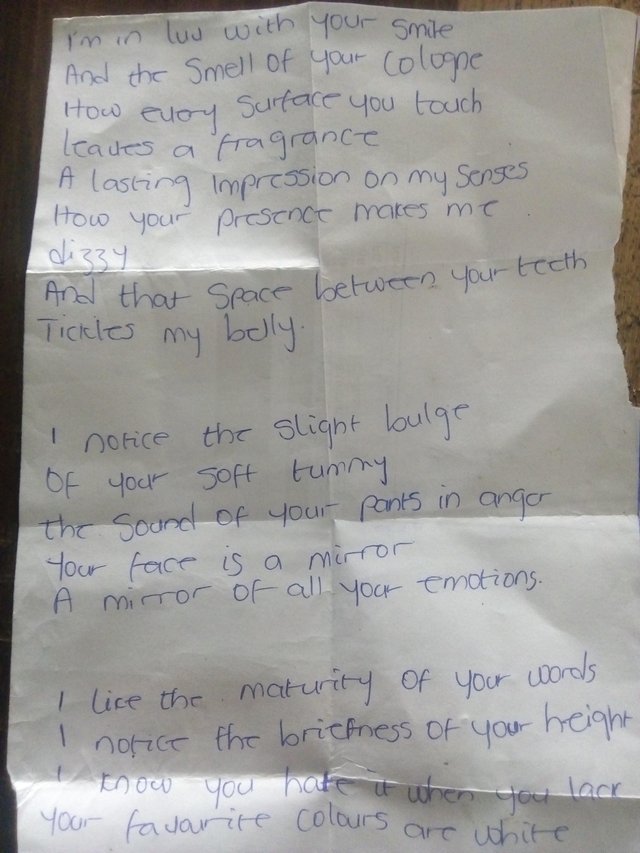 I'm in luv with your smile
And the smell of your cologne
How every surface you touch
leaves a fragrance
A lasting Impression on my senses
How your presence makes me
dizzy
And that space between your teeth
Tickles my belly.
I notice the slight bulge
Of your soft tummy
the sound of your pants in anger
Your face is a mirror
A mirror of all your emotions.
I like the maturity of your words
I notice the briefness of your height
I know you hate it when you lack
your favourite colours are white